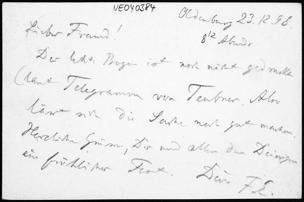 NEO40384
Oldenburg 23.12.98
8½ Abends
Lieber Freund!
Der letzte Bogen ist noch nicht gedruckt
(laut Telegramm von Teubner. Also
lässt sich die Sache noch gut machen.
Herzliche Grüsse, Dir und allen den Deinigen
ein fröhliches Fest. Dein F. E.